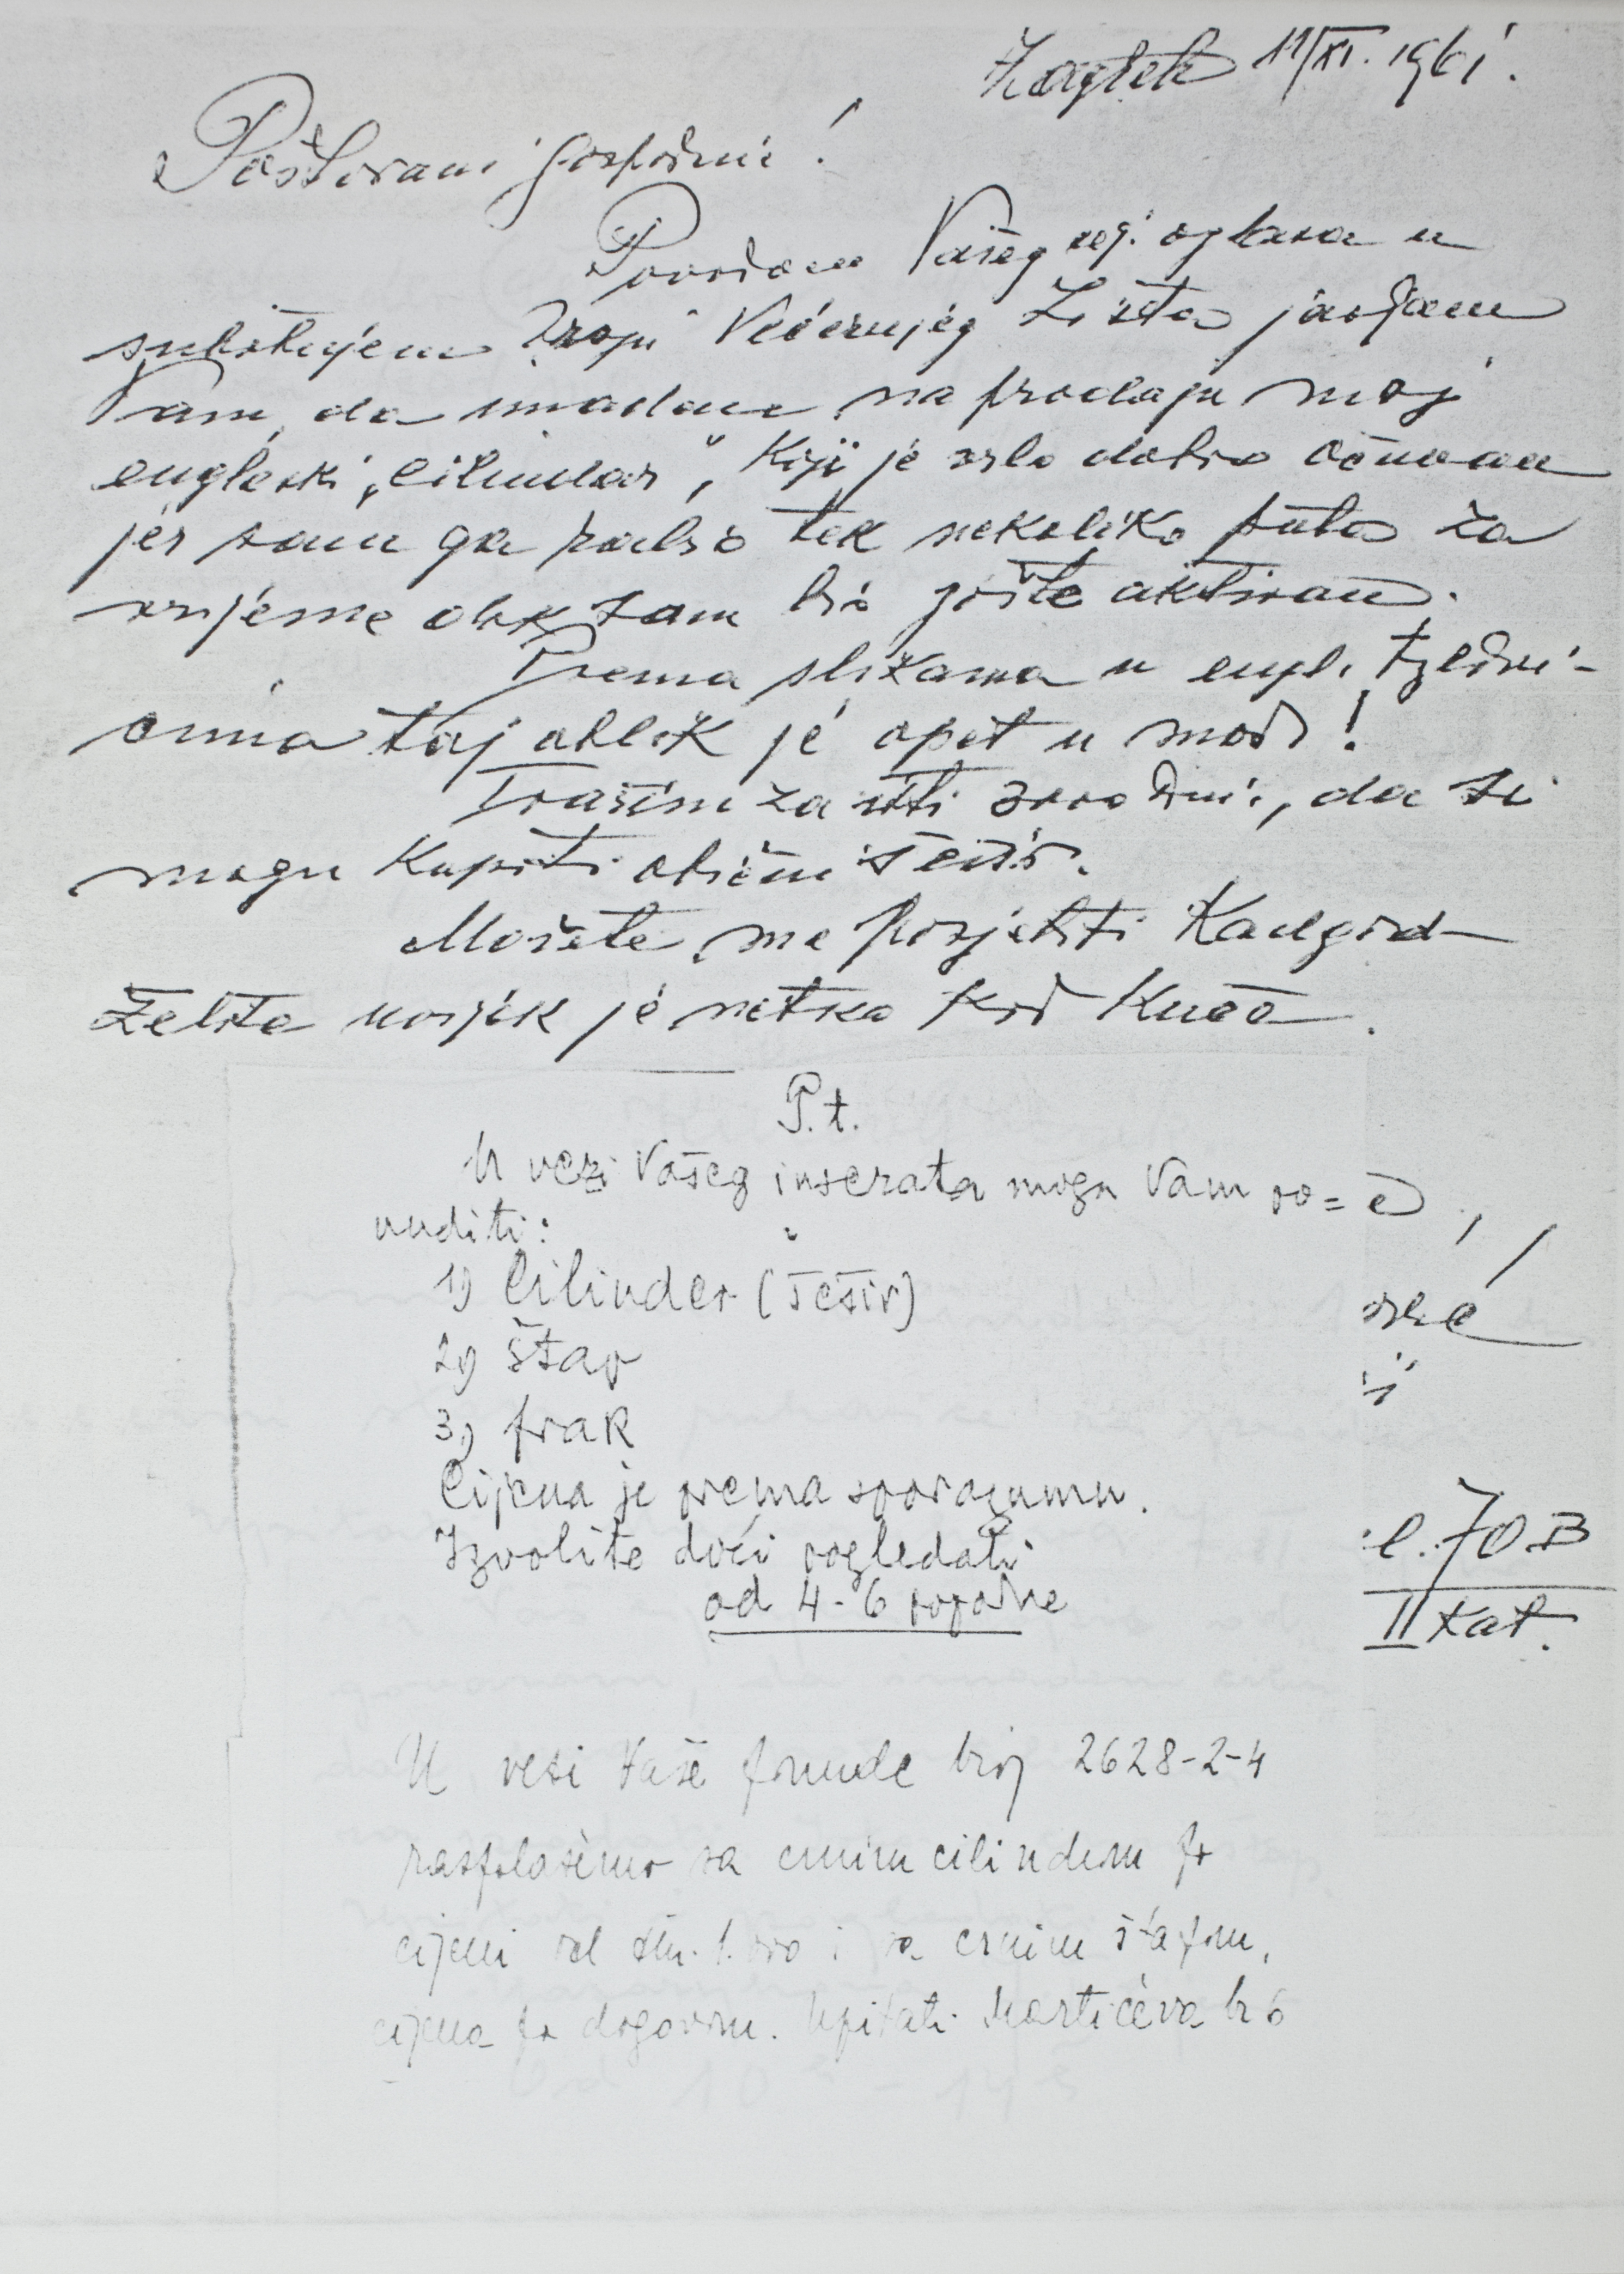 Zagreb 11/XI. 1961.
Poštovani gospodine!
Povodom Vašeg cej. oglasa u
subotnjem broju Večernjeg Lista javljam
Vam, da imadem na prodaju moj
engleski "cilindar", koji je vrlo dobro očuvan
jer sam ga rabio tek nekoliko puta za
vrijeme dok sam bio jošte aktivan.
Prema slikama u engl.
taj oblik je opet u modi!
Tražim za isti 3000 din., da si
mogu kupiti obični šešir.
Možete me posjetiti kadgod
želite uvijek je netko kod kuće.
P.t.
U vezi Vašeg inserata mogu Vam po=
nuditi:
1) Cilinder (šešir)
2) štap
3) frak
Cijena je prema sporazumu.
Izvolite doći pogledati
od 4-6 popodne
70B
II kat.
U vezi Vaše ponude broj 2628-2-4
raspolažemo sa crnim cilindrom po
cijeni od din. 1.000 i sa crnim štapom,
cijena po dogovoru. Upitati Martićeva br 6